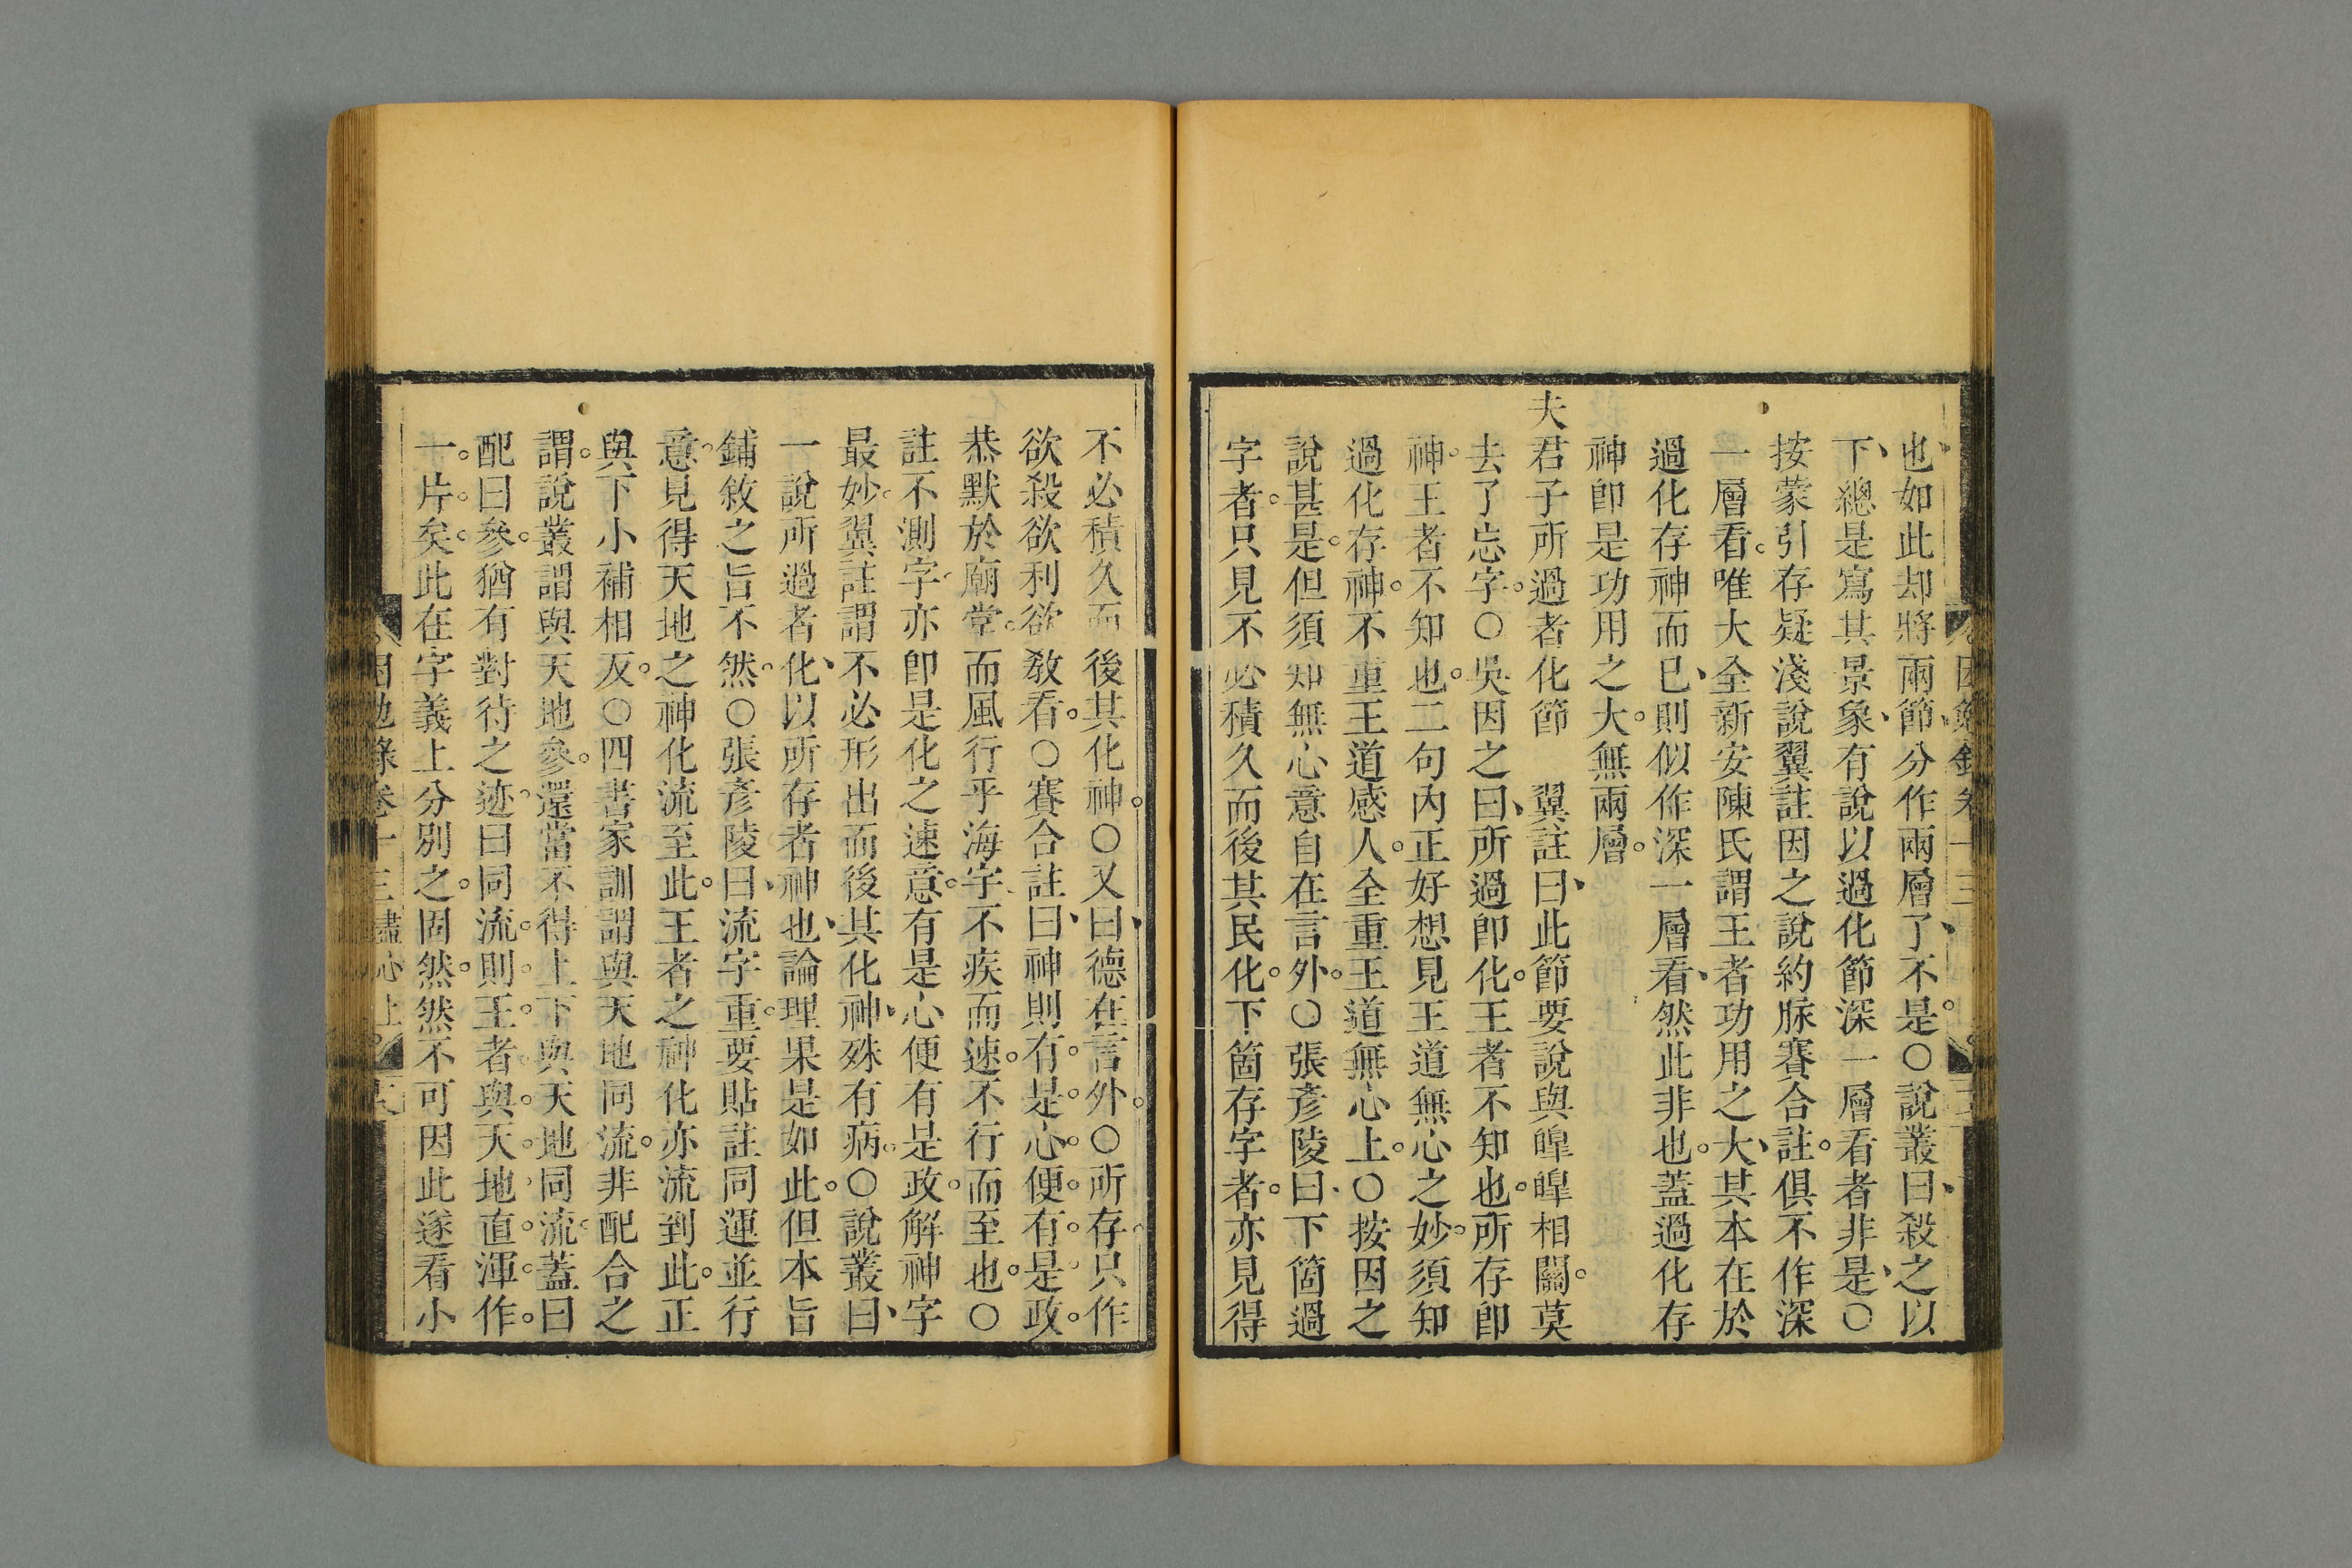 也如此却將兩節分作兩層了不是○說叢曰殺之以
下總是寫其景象有說以過化節深一層看者非是○
按蒙引存疑淺說翼註因之說約脈賽合註俱不作深
一層看唯大全新安陳氏謂王者功用之大其本在於
過化存神而已則似作深一層看然此非也蓋過化存
神卽是功用之大無兩層
夫君子所過者化節 翼註曰此節要說與皥皥相關莫
去了忘字○吳因之曰所過卽化王者不知也所存卽
神王者不知也二句內正好想見王道無心之妙須知
過化存神不重王道感人全重王道無心上○按因之
說甚是但須知無心意自在言外○張彥陵曰下箇過
字者只見不必積久而後其民化下箇存字者亦見得
不必積久而後其化神○又曰德在言外○所存只作
欲殺欲利欲敎看○賽合註曰神則有是心便有是政
恭默於廟堂而風行乎海宇不疾而速不行而至也○
註不測字亦卽是化之速意有是心便有是政解神字
最妙翼註謂不必形出而後其化神殊有病○說叢曰
一說所過者化以所存者神也論理果是如此但本旨
鋪敘之旨不然○張彥陵曰流字重要貼註同運並行
意見得天地之神化流至此王者之神化亦流到此正
與下小補相反○四書家訓謂與天地同流非配合之
謂說叢謂與天地參還當不得上下與天地同流蓋曰
配曰參猶有對待之迹曰同流則王者與天地直渾作
一片矣此在字義上分別之固然然不可因此遂看小